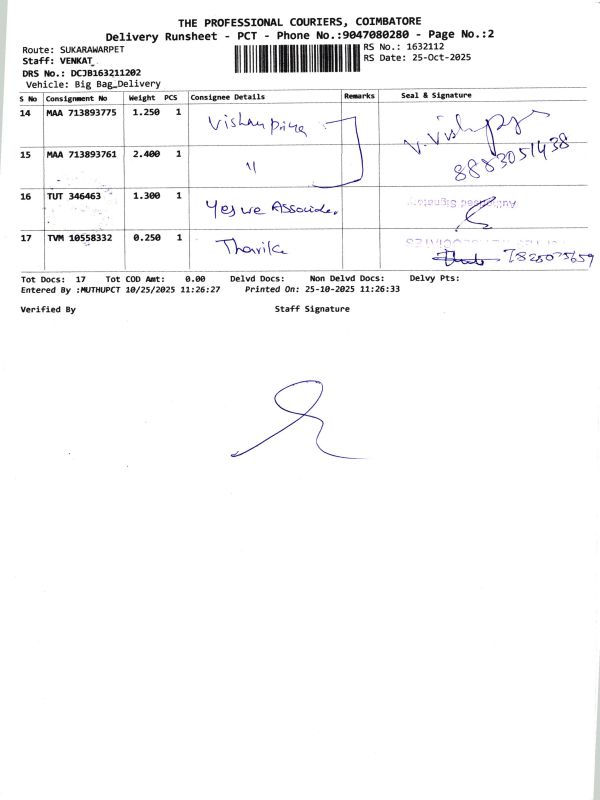 THE PROFESSIONAL COURIERS, COIMBATORE
Delivery Runsheet - PCT - Phone No.:9047080280 - Page No.:2
Route: SUKARAWARPET
RS No.: 1632112
Staff: VENKAT
RS Date: 25-Oct-2025
DRS No.: DCJB163211202
Vehicle: Big Bag Delivery
S No Consignment No Weight PCS Consignee Details Remarks Seal & Signature
14 MAA 713893775 1.250 1 Vishnu Priya V. Vishnupriya
8883051438
15 MAA 713893761 2.400 1 "
16 TUT 346463 1.300 1 Yes we Associate. Authorised Signatory
17 TVM 10558332 0.250 1 Tharika 7825075659
Tot Docs: 17 Tot COD Amt: 0.00 Delvd Docs: Non Delvd Docs: Delvy Pts:
Entered By :MUTHUPCT 10/25/2025 11:26:27 Printed On: 25-10-2025 11:26:33
Verified By Staff Signature